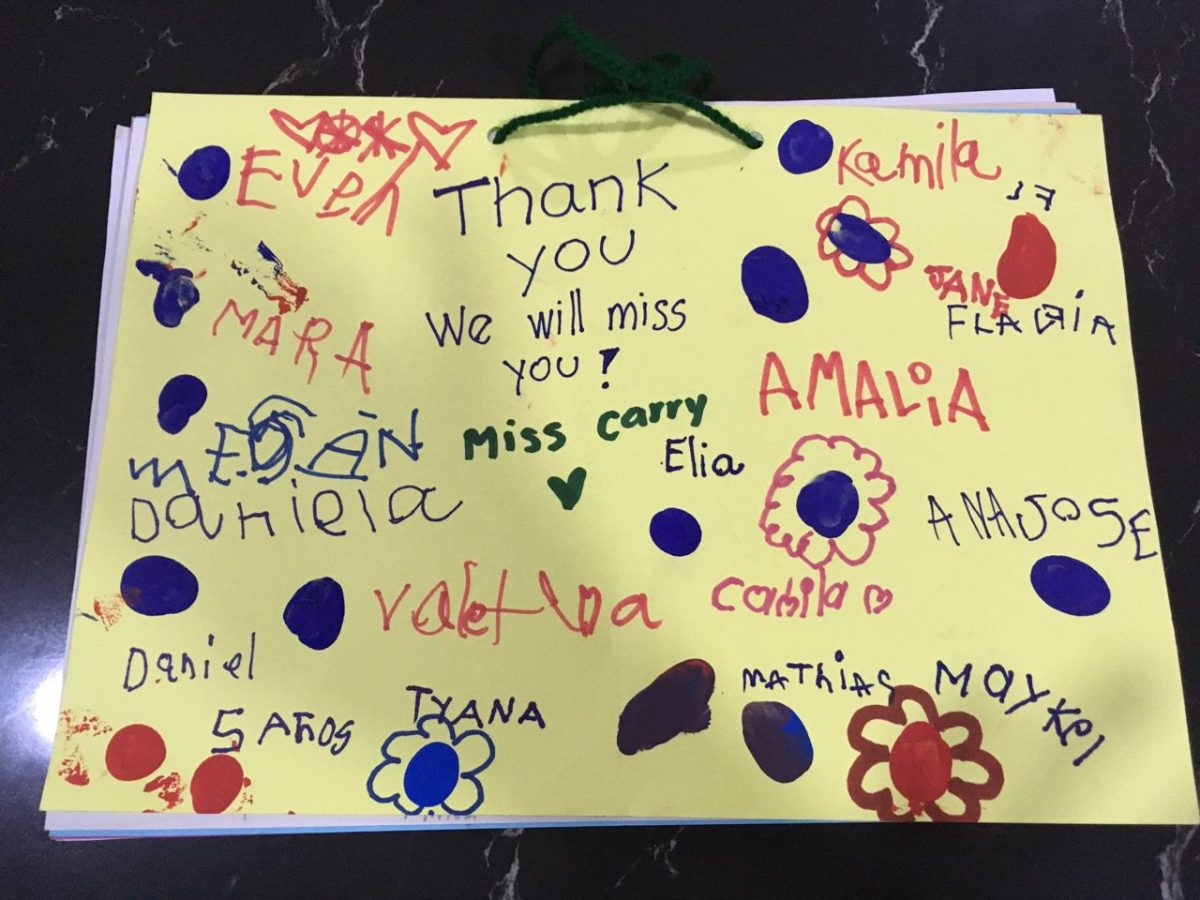 Even
Thank
you
We will miss
you!
Miss Carry
Kamila
17
JANE
FLAVIA
MARA
AMALiA
mEGAN
Elia
Daniela
ANAJOSE
Valentina
Camila
Daniel
5 AÑOS
TYANA
MATHiAS
MAYKel